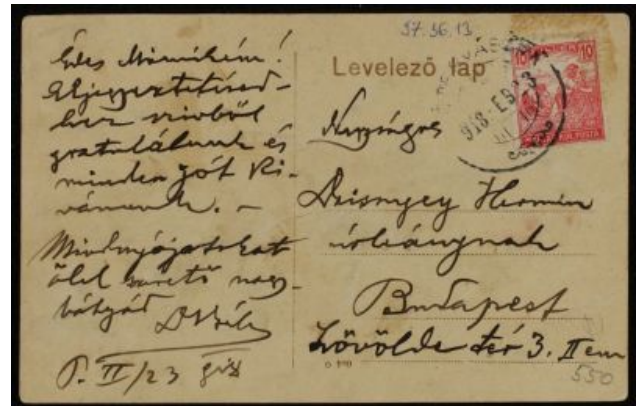 97.36.13
Levelező lap
10
10
918
Édes Mimikém!
Eljegyzésed-
hez szívből
gratulálunk és
minden jót ki-
vánunk. —
Mindnyájatokat
ölel szerető nagy-
bátyád
Béla
II/23
Nagyságos
Hermin
úrleánynak
Budapest
Lövölde tér 3. II em
550